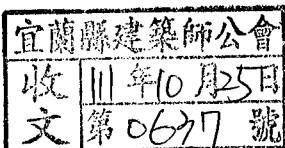 宜蘭縣建築師公會
收文
111年10月25日
第0637號